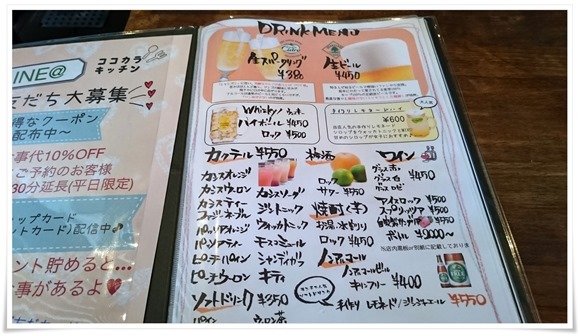 ココカラ
キッチン
INE@
だち大募集
得なクーポン
配布中〜
事代10%OFF
ご予約のお客様
30分延長(平日限定)
ョップカード
ットカード)配信中♪
ント貯めると...
事があるよ♥
DRINK MENU
生スパークリング
¥380
生ビール
¥450
Whisky
ハイボール ¥450
ロック ¥500
¥600
カクテル ¥550
カシスオレンジ
カシスウーロン
カシスソーダ
カシスティー
ファジーネーブル
ジントニック
ウォッカトニック
モスコミュール
ピーチパイン
シャンディガフ
ピーチウーロン
キティ
ソフトドリンク ¥350
パイン
ウーロン茶
梅酒
ロック
サワー ¥550
焼酎(芋)
お湯・水割り
ロック ¥450
ノンアルコール
ノンアルコールビール
キリンフリー ¥400
ワイン
グラス 赤
グラス 白 ¥450
グラス ロゼ
アイスロック ¥500
スプリッツァ ¥500
¥550
ボトル ¥2000〜
※店内黒板or別紙に記載しております
手作り レモネード/ジンジャエール ¥550